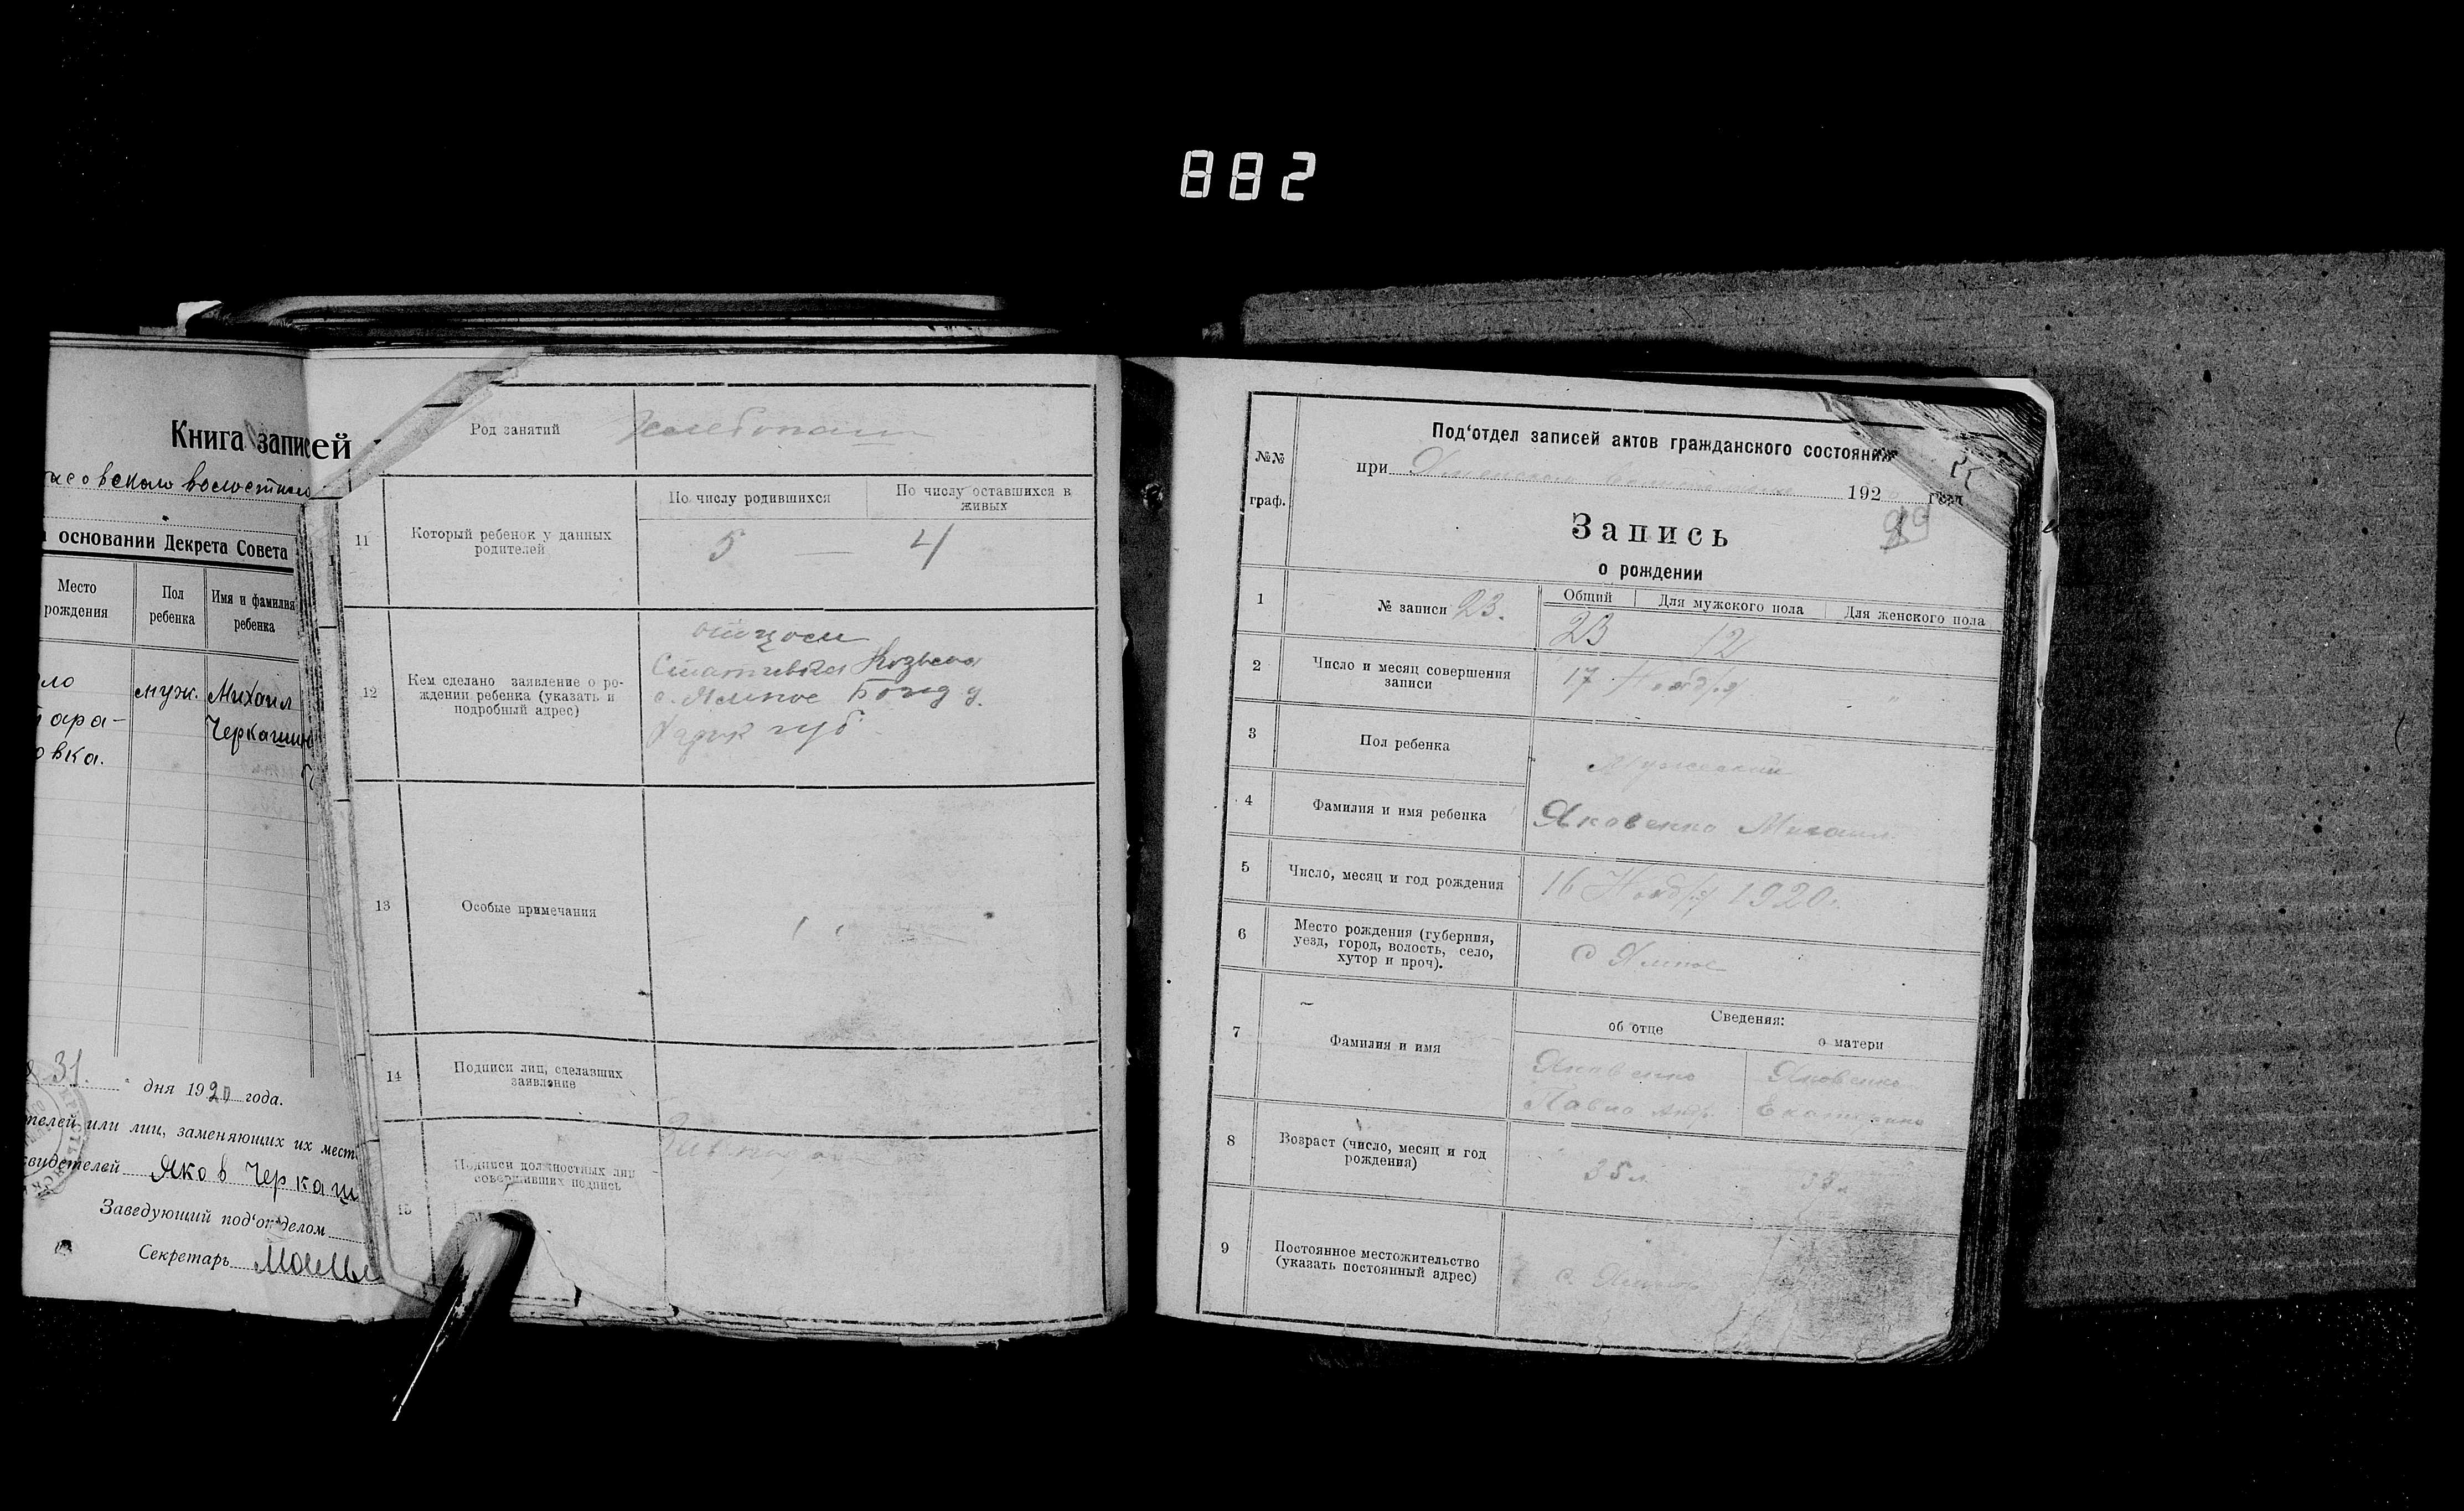 882
Книга записей
волостного
основании Декрета Совета
Место рождения
Пол ребенка
Имя и фамилия ребенка
ло
муж.
Михаил
Черкашин
овка.
31. дня 1920 года.
телей или лиц, заменяющих их место
свидетелей Яков Черкаш
Заведующий под‘отделом
Секретарь
Род занятий Хлебопаш
11
Который ребенок у данных родителей
По числу родившихся
По числу оставшихся в живых
5 — 4
12
Кем сделано заявление о рождении ребенка (указать и подробный адрес)
отцом
Стативка Козьма
с. Ямное Богод у.
Харьк губ
13
Особые примечания
14
Подписи лиц, сделавших заявление
15
Подписи должностных лиц совершивших подпись
№№ граф.
Под‘отдел записей актов гражданского состояния
при 1920 год
29
Запись
о рождении
1
№ записи 23.
Общий
Для мужского пола
Для женского пола
23 12
2
Число и месяц совершения записи
17 Ноября "
3
Пол ребенка
Мужеский
4
Фамилия и имя ребенка
Яковенко Михаил
5
Число, месяц и год рождения
16 Ноября 1920 г.
6
Место рождения (губерния, уезд, город, волость, село, хутор и проч).
с Ямное
7
Фамилия и имя
Сведения:
об отце
о матери
Яковенко
Павло Андр.
Яковенко
Екатерина
8
Возраст (число, месяц и год рождения)
35 л.
33 л
9
Постоянное местожительство (указать постоянный адрес)
с. Ямное